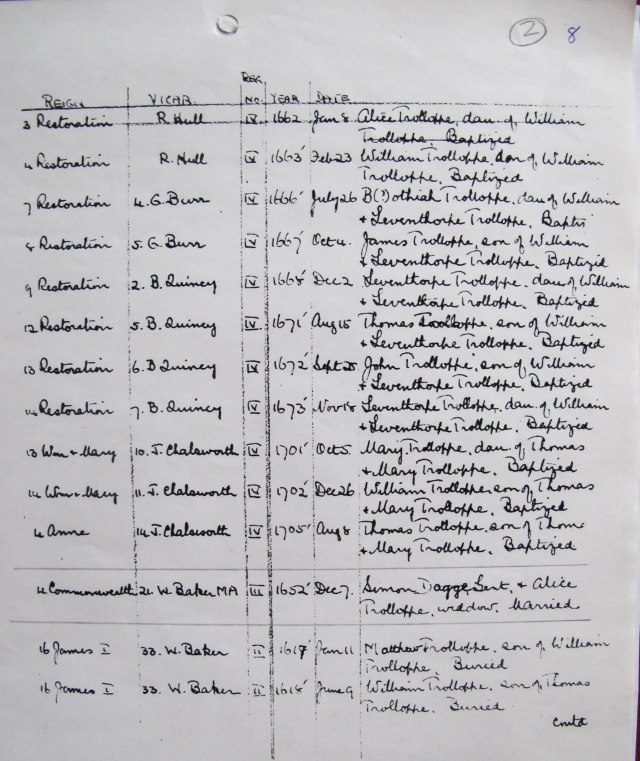 2 8
REIGN VICAR REG. NO. YEAR DATE
3 Restoration R. Hull IV 1662 Jan 8 Alice Trolloppe, dau of William
Trolloppe Baptized
4 Restoration R. Hull IV 1663 Feb 23 William Trolloppe, son of William
Trolloppe, Baptized
7 Restoration 4. G. Burr IV 1666 July 26 B(?)othiah Trolloppe, dau of William
+ Leventhorpe Trolloppe, Baptis
8 Restoration 5. G. Burr IV 1667 Oct 4. James Trolloppe, son of William
+ Leventhorpe Trolloppe, Baptized
9 Restoration 2. B. Quincy IV 1668 Dec 2 Leventhorpe Trolloppe, dau of William
+ Leventhorpe Trolloppe, Baptized
12 Restoration 5. B. Quincy IV 1671 Aug 15 Thomas Trolloppe, son of William
+ Leventhorpe Trolloppe, Baptized
13 Restoration 6. B Quincy IV 1672 Sept 25 John Trolloppe, son of William
+ Leventhorpe Trolloppe, Baptized
14 Restoration 7. B. Quincy IV 1673 Nov 18 Leventhorpe Trolloppe, dau of William
+ Leventhorpe Trolloppe, Baptized
13 Wm + Mary 10. J. Chalsworth IV 1701 Oct 5. Mary Trolloppe, dau of Thomas
+ Mary Trolloppe, Baptized
14 Wm + Mary 11. J. Chalsworth IV 1702 Dec 26 William Trolloppe, son of Thomas
+ Mary Trolloppe, Baptized
4 Anne 14. J. Chalsworth IV 1705 Aug 8 Thomas Trolloppe, son of Thom
+ Mary Trolloppe, Baptized
4 Commonwealth 21. W. Baker MA III 1652 Dec 7. Simon Dagge Gent, + Alice
Trolloppe, widdow, Married
16 James I 33. W. Baker II 1617 Jan 11 Matthew Trolloppe, son of William
Trolloppe, Buried
16 James I 33. W. Baker II 1618 June 9 William Trolloppe, son of Thomas
Trolloppe, Buried
contd